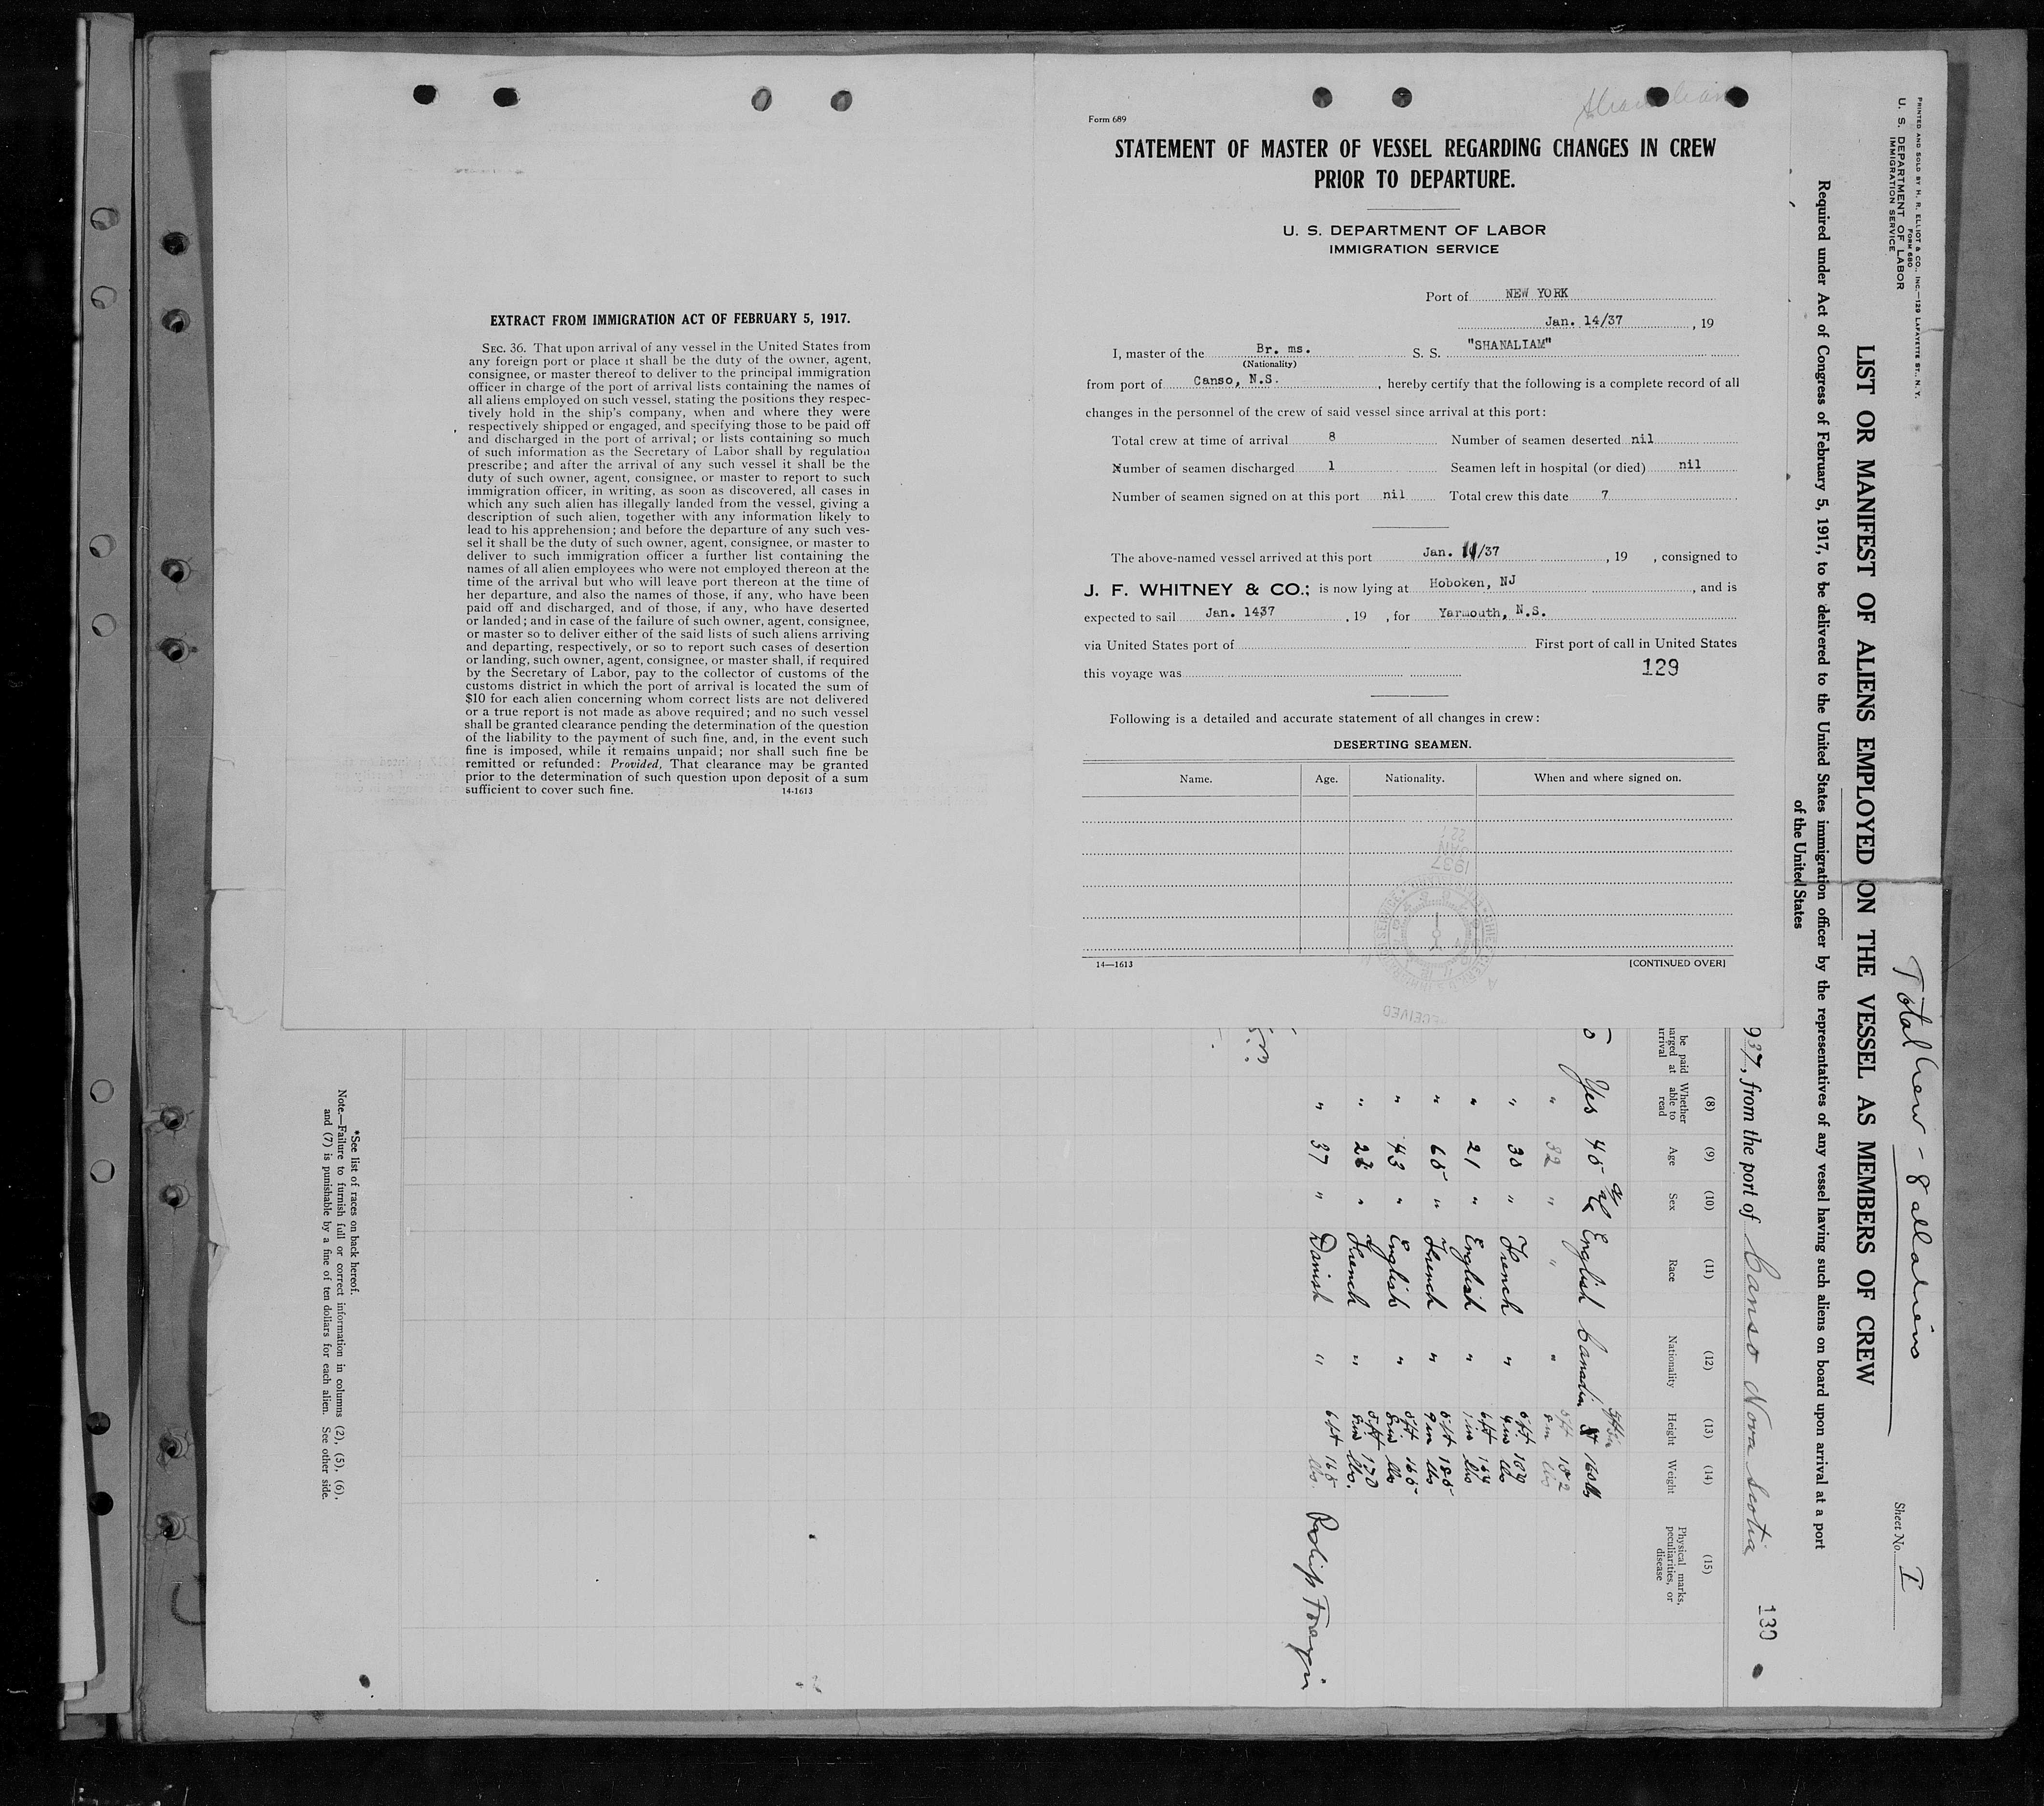 EXTRACT FROM IMMIGRATION ACT OF FEBRUARY 5, 1917.
SEC. 36. That upon arrival of any vessel in the United States from
any foreign port or place it shall be the duty of the owner, agent,
consignee, or master thereof to deliver to the principal immigration
officer in charge of the port of arrival lists containing the names of
all aliens employed on such vessel, stating the positions they respec-
tively hold in the ship's company, when and where they were
respectively shipped or engaged, and specifying those to be paid off
and discharged in the port of arrival; or lists containing so much
of such information as the Secretary of Labor shall by regulation
prescribe; and after the arrival of any such vessel it shall be the
duty of such owner, agent, consignee, or master to report to such
immigration officer, in writing, as soon as discovered, all cases in
which any such alien has illegally landed from the vessel, giving a
description of such alien, together with any information likely to
lead to his apprehension; and before the departure of any such ves-
sel it shall be the duty of such owner, agent, consignee, or master to
deliver to such immigration officer a further list containing the
names of all alien employees who were not employed thereon at the
time of the arrival but who will leave port thereon at the time of
her departure, and also the names of those, if any, who have been
paid off and discharged, and of those, if any, who have deserted
or landed; and in case of the failure of such owner, agent, consignee,
or master so to deliver either of the said lists of such aliens arriving
and departing, respectively, or so to report such cases of desertion
or landing, such owner, agent, consignee, or master shall, if required
by the Secretary of Labor, pay to the collector of customs of the
customs district in which the port of arrival is located the sum of
$10 for each alien concerning whom correct lists are not delivered
or a true report is not made as above required; and no such vessel
shall be granted clearance pending the determination of the question
of the liability to the payment of such fine, and, in the event such
fine is imposed, while it remains unpaid; nor shall such fine be
remitted or refunded: Provided, That clearance may be granted
prior to the determination of such question upon deposit of a sum
sufficient to cover such fine. 14-1613
Form 689
STATEMENT OF MASTER OF VESSEL REGARDING CHANGES IN CREW
PRIOR TO DEPARTURE.
U. S. DEPARTMENT OF LABOR
IMMIGRATION SERVICE
Port of NEW YORK
Jan. 14/37, 19
I, master of the Br. ms. S. S. "SHANALIAM"
(Nationality)
from port of Canso, N.S., hereby certify that the following is a complete record of all
changes in the personnel of the crew of said vessel since arrival at this port:
Total crew at time of arrival 8 Number of seamen deserted nil
Number of seamen discharged 1 Seamen left in hospital (or died) nil
Number of seamen signed on at this port nil Total crew this date 7
The above-named vessel arrived at this port Jan. /37, 19 , consigned to
J. F. WHITNEY & CO.; is now lying at Hoboken, NJ, and is
expected to sail Jan. 1437, 19 , for Yarmouth, N.S.
via United States port of First port of call in United States
this voyage was 129
Following is a detailed and accurate statement of all changes in crew:
DESERTING SEAMEN.
Name. Age. Nationality. When and where signed on.
JAN 22 1937
RECEIVED
14—1613 [CONTINUED OVER]
PRINTED AND SOLD BY H. R. ELLIOT & CO., INC.—129 LAFAYETTE ST., N. Y.
FORM 680
U. S. DEPARTMENT OF LABOR
IMMIGRATION SERVICE
Total Crew - 8 all aliens
Sheet No. I
LIST OR MANIFEST OF ALIENS EMPLOYED ON THE VESSEL AS MEMBERS OF CREW
Required under Act of Congress of February 5, 1917, to be delivered to the United States immigration officer by the representatives of any vessel having such aliens on board upon arrival at a port
of the United States
937, from the port of Canso Nova Scotia
130
(8) (9) (10) (11) (12) (13) (14) (15)
be paid
arged at
rrival
Whether able to read
Age
Sex
Race
Nationality
Height
Weight
Physical marks, peculiarities, or disease
Yes 45 English Canadian 160 lbs
" 32 " " " 5ft 8in 182 lbs
" 30 " French " 5ft 4in lbs
" 21 " English " 5ft 1in lbs
" 65 " French " 5ft 9in 185 lbs
" 43 " English " 5ft 8in 165 lbs
" " French " 5ft 8in 170 lbs.
" 37 " Danish " 6ft 165 lbs.
*See list of races on back hereof.
Note.—Failure to furnish full or correct information in columns (2), (5), (6),
and (7) is punishable by a fine of ten dollars for each alien. See other side.